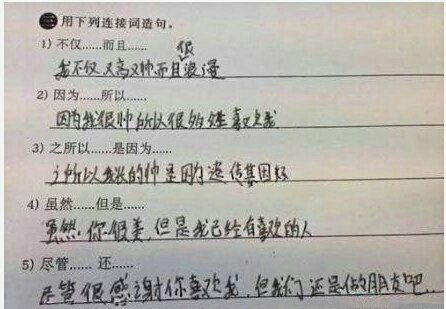 三 用下列连接词造句。
1) 不仅……而且……
我不仅又高又帅而且很浪漫
2) 因为……所以……
因为我很帅所以很多娃喜欢我
3) 之所以……是因为……
之所以我长的帅是因为遗传基因好
4) 虽然……但是……
虽然你很美，但是我已经有喜欢的人
5) 尽管…… 还……
尽管很感谢你喜欢我，但我们还是做朋友吧.